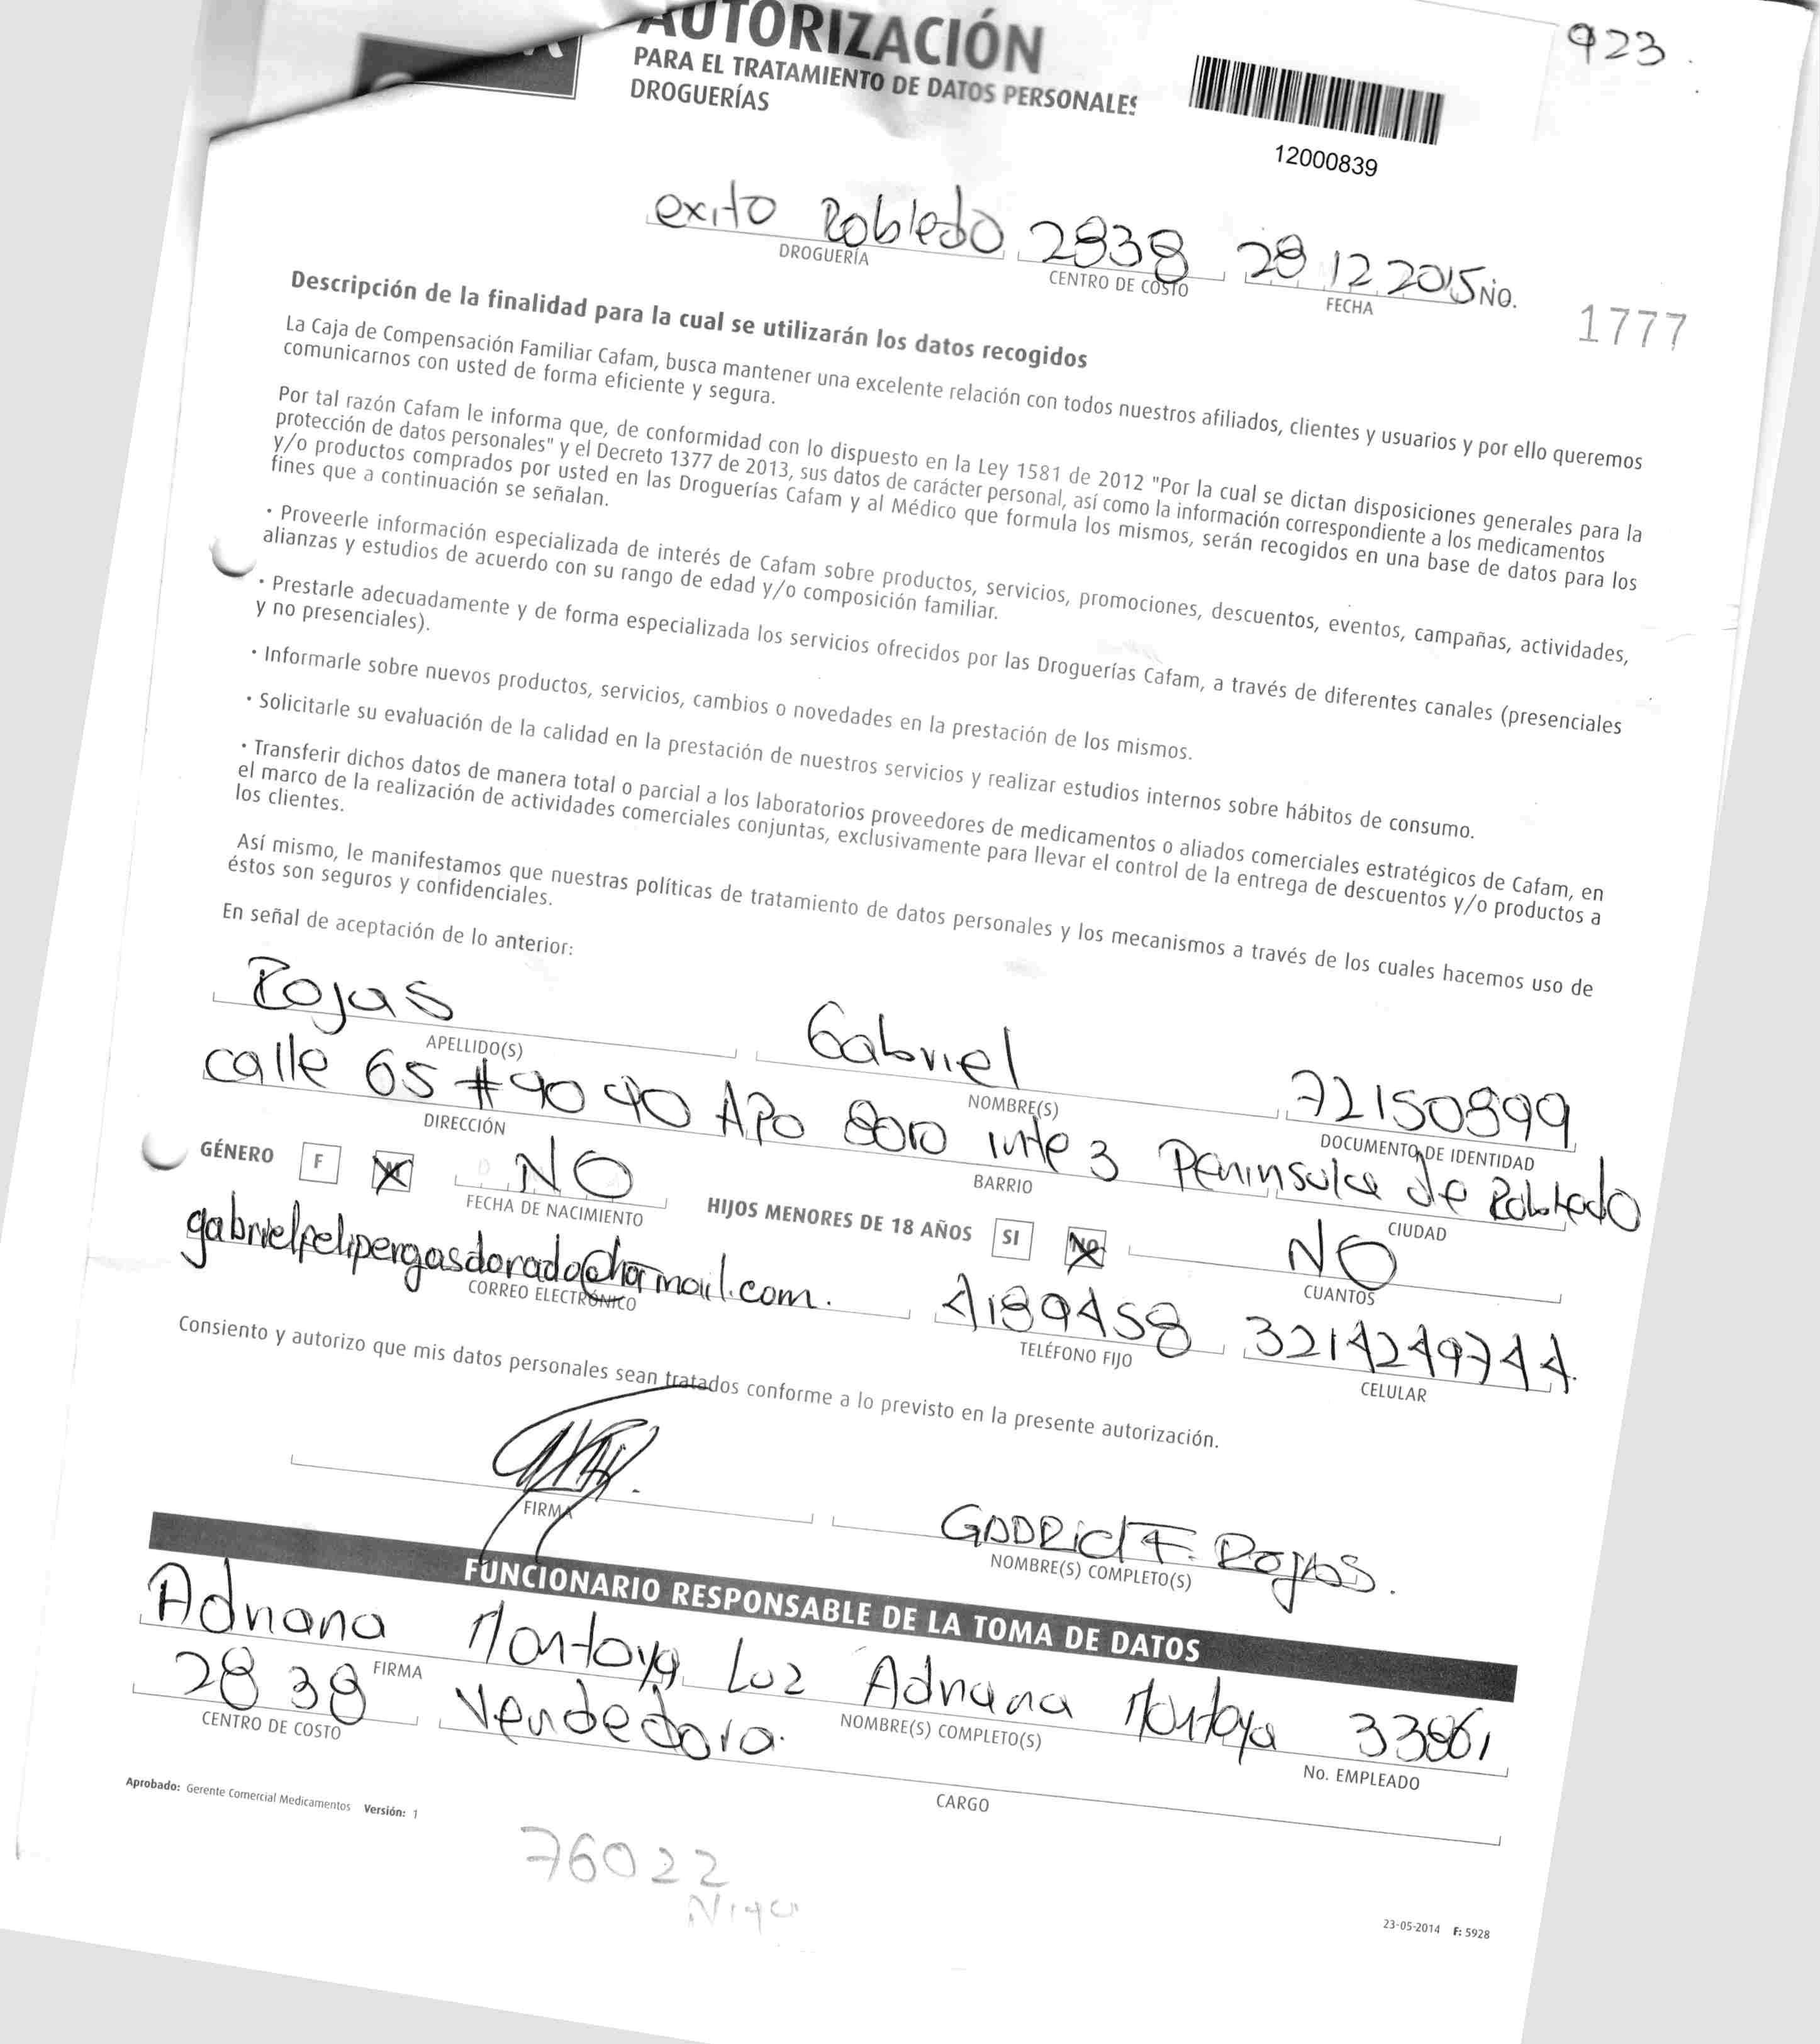 923.
AUTORIZACIÓN
PARA EL TRATAMIENTO DE DATOS PERSONALES
DROGUERÍAS
12000839
exito Robledo 2838 28 12 2015 NO.
DROGUERÍA CENTRO DE COSTO FECHA
1777
Descripción de la finalidad para la cual se utilizarán los datos recogidos
La Caja de Compensación Familiar Cafam, busca mantener una excelente relación con todos nuestros afiliados, clientes y usuarios y por ello queremos
comunicarnos con usted de forma eficiente y segura.
Por tal razón Cafam le informa que, de conformidad con lo dispuesto en la Ley 1581 de 2012 "Por la cual se dictan disposiciones generales para la
protección de datos personales" y el Decreto 1377 de 2013, sus datos de carácter personal, así como la información correspondiente a los medicamentos
y/o productos comprados por usted en las Droguerías Cafam y al Médico que formula los mismos, serán recogidos en una base de datos para los
fines que a continuación se señalan.
• Proveerle información especializada de interés de Cafam sobre productos, servicios, promociones, descuentos, eventos, campañas, actividades,
alianzas y estudios de acuerdo con su rango de edad y/o composición familiar.
• Prestarle adecuadamente y de forma especializada los servicios ofrecidos por las Droguerías Cafam, a través de diferentes canales (presenciales
y no presenciales).
• Informarle sobre nuevos productos, servicios, cambios o novedades en la prestación de los mismos.
• Solicitarle su evaluación de la calidad en la prestación de nuestros servicios y realizar estudios internos sobre hábitos de consumo.
• Transferir dichos datos de manera total o parcial a los laboratorios proveedores de medicamentos o aliados comerciales estratégicos de Cafam, en
el marco de la realización de actividades comerciales conjuntas, exclusivamente para llevar el control de la entrega de descuentos y/o productos a
los clientes.
Así mismo, le manifestamos que nuestras políticas de tratamiento de datos personales y los mecanismos a través de los cuales hacemos uso de
éstos son seguros y confidenciales.
En señal de aceptación de lo anterior:
Rojas Gabriel 72150899
APELLIDO(S) NOMBRE(S) DOCUMENTO DE IDENTIDAD
calle 65 #90 90 APO 8010 inte 3 Peninsula de Robledo
DIRECCIÓN BARRIO CIUDAD
GÉNERO F M NO HIJOS MENORES DE 18 AÑOS SI NO NO
FECHA DE NACIMIENTO CUANTOS
gabrielfeliperojasdorado@hotmail.com. 4189458 3214249744.
CORREO ELECTRÓNICO TELÉFONO FIJO CELULAR
Consiento y autorizo que mis datos personales sean tratados conforme a lo previsto en la presente autorización.
F. Rojas.
FIRMA NOMBRE(S) COMPLETO(S)
FUNCIONARIO RESPONSABLE DE LA TOMA DE DATOS
Adriana Montoya Luz Adriana Montoya 33861
FIRMA NOMBRE(S) COMPLETO(S) No. EMPLEADO
2838 Vendedora.
CENTRO DE COSTO CARGO
Aprobado: Gerente Comercial Medicamentos Versión: 1
76022
23-05-2014 F: 5928